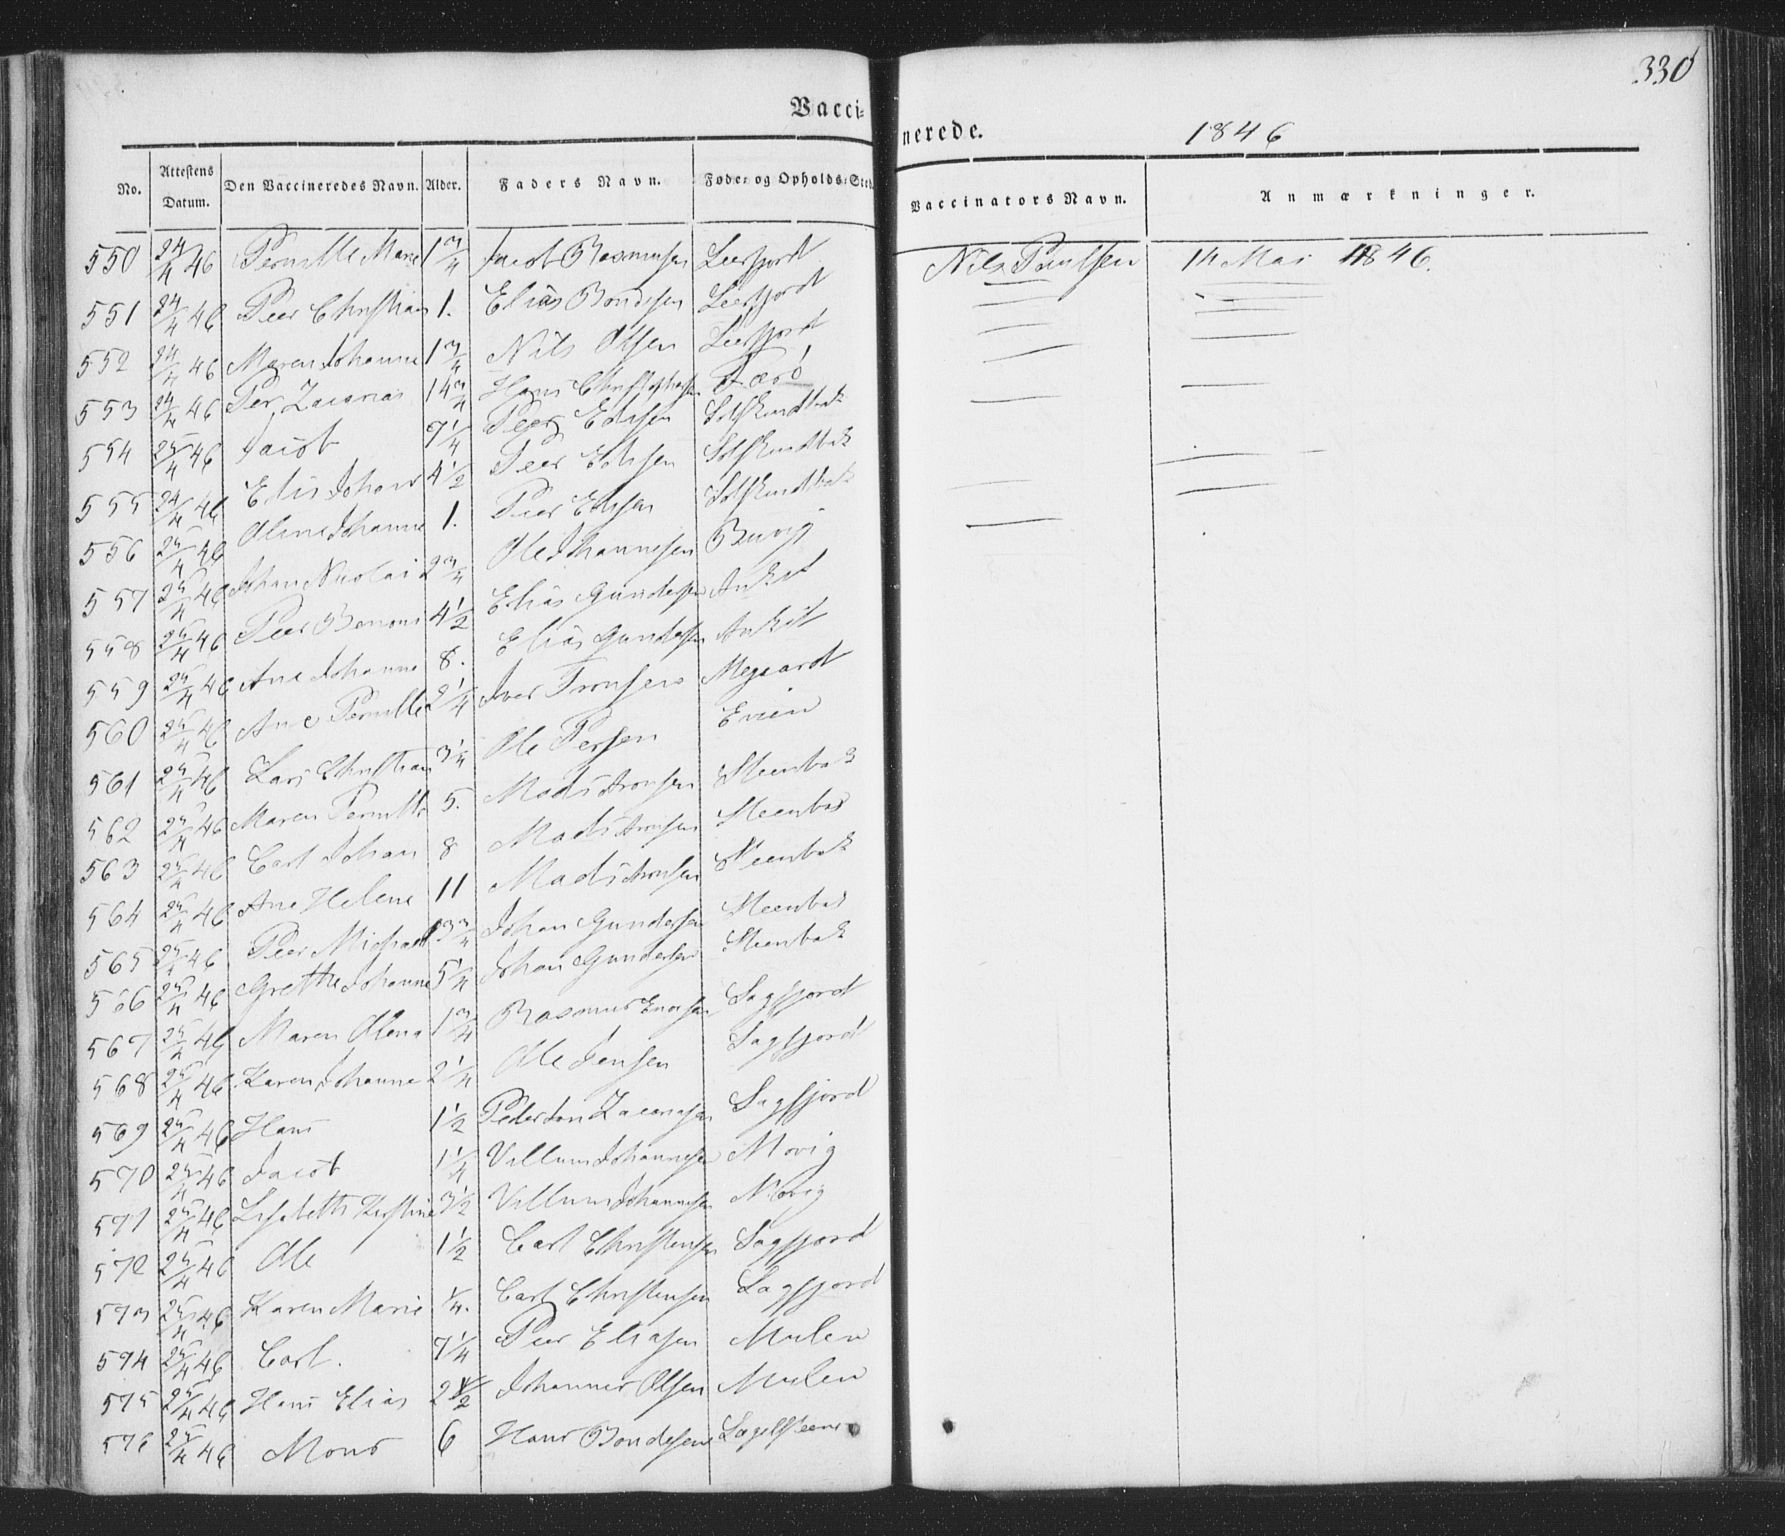 330
Vaccinerede. 1846
No. Attestens Datum. Den Vaccineredes Navn. Alder. Faders Navn. Føde- og Opholds-Sted. Vaccinators Navn. Anmærkninger.
550 24/4 46 Pernille Marie 1 3/4 Jacob Rasmusen Leerfjord Nils Paulsen 14 Mai 1846.
551 24/4 46 Peer Christian 1. Elias Bondesen Leerfjord
552 24/4 46 Maren Johanne 1 3/4 Nils Olsen Leerfjord
553 24/4 46 Per Zacarias 14 3/4 Hans Christophersen
554 25/4 46 Jacob 7 1/4 Peer
555 24/4 46 Johan 4 1/2 Peer
556 25/4 46 Oline Johanne 1. Peer
557 25/4 46 Johan Nicolai 2 3/4 Ole Johannesen
558 25/4 46 Peer Benoni 4 1/2 Elias Gundersen
559 25/4 46 Ane Johanne 8. Elias Gundersen
560 25/4 46 Ane Pernille 2 1/4 Iver Tronsen
561 25/4 46 Lars Christian 3 1/4 Ole Persen
562 25/4 46 Maren Pernille 5. Mads Aronsen Steenbak
563 25/4 46 Carl Johan 8 Mads Aronsen Steenbak
564 25/4 46 Ane Helene 11 Mads Aronsen Steenbak
565 25/4 46 Peer Michael 13 3/4 Johan Gundersen Steenbak
566 25/4 46 Grethe Johanne 5 1/4 Johan Gundersen Steenbak
567 25/4 46 Maren Olena 1 3/4 Rasmus Enersen Sagfjord
568 25/4 46 Karen Johanne 2 1/4 Ole Jensen Sagfjord
569 25/4 46 Hans 1 1/2 Peder Zacariasen Sagfjord
570 25/4 46 Jacob 1 1/4 Villum Johannesen Movig
571 25/4 46 Lisebeth Kirstine 3 1/2 Villum Johannesen Movig
572 25/4 46 Ole 1 1/2 Carl Christensen Sagfjord
573 25/4 46 Karen Marie 1/4. Carl Christensen Sagfjord
574 25/4 46 Carl. 7 1/4 Peer Eliasen Mulen
575 25/4 46 Hans Elias 2 1/2 Johannes Olsen Mulen
576 25/4 46 Mons 6 Hans Bondesen